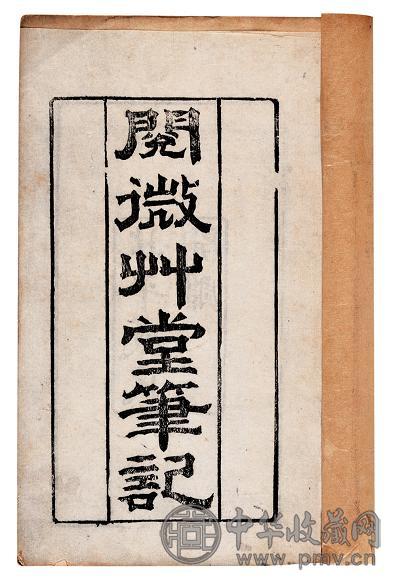 閱微艸堂筆記
中华收藏网
www.pmv.cn